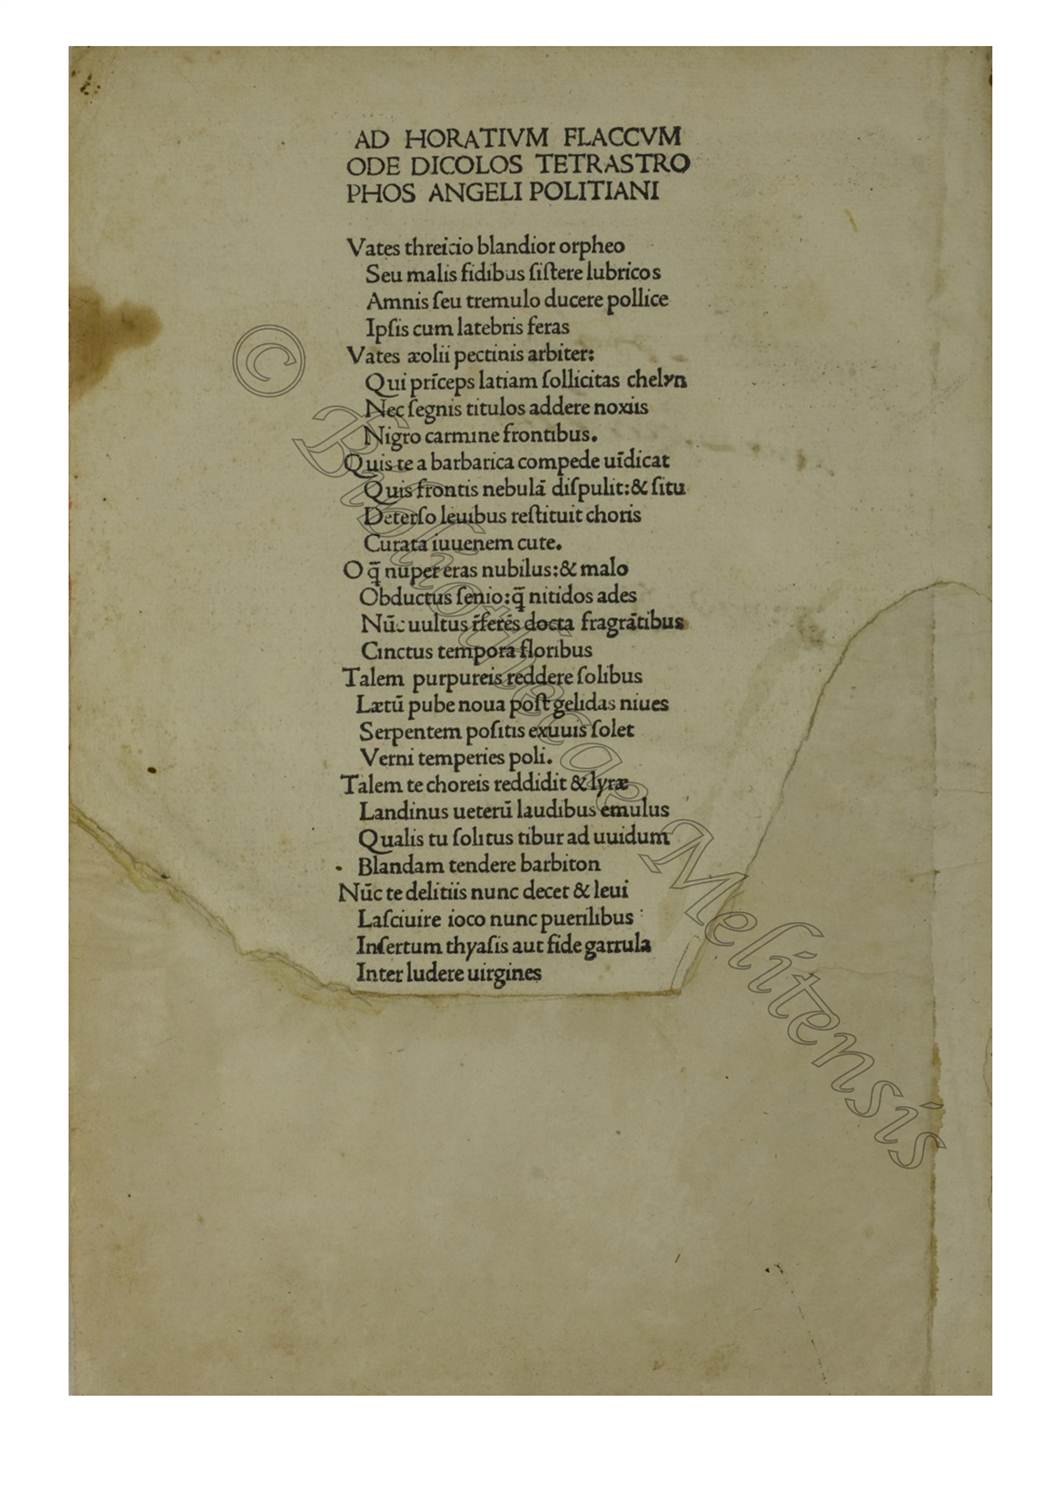 AD HORATIVM FLACCVM
ODE DICOLOS TETRASTRO
PHOS ANGELI POLITIANI
Vates threicio blandior orpheo
Seu malis fidibus ſiſtere lubricos
Amnis ſeu tremulo ducere pollice
Ipſis cum latebris feras
Vates æolii pectinis arbiter:
Qui prīceps latiam ſollicitas chelyn
Nec ſegnis titulos addere noxiis
Nigro carmine frontibus.
Quis te a barbarica compede uīdicat
Quis frontis nebulā diſpulit:& ſitu
Deterſo leuibus reſtituit choris
Curata iuuenem cute.
O q̄ nuper eras nubilus:& malo
Obductus ſenio:q̄ nitidos ades
Nūc uultus r̄ferēs docta fragrātibus
Cinctus tempora floribus
Talem purpureis reddere ſolibus
Lætū pube noua poſt gelidas niues
Serpentem poſitis exuuis ſolet
Verni temperies poli.
Talem te choreis reddidit & lyræ
Landinus ueterū laudibus emulus
Qualis tu ſolitus tibur ad uuidum
Blandam tendere barbiton
Nūc te delitiis nunc decet & leui
Laſciuire ioco nunc puerilibus
Inſertum thyaſis aut fide garrula
Inter ludere uirgines
© Bibliotheca Melitensis